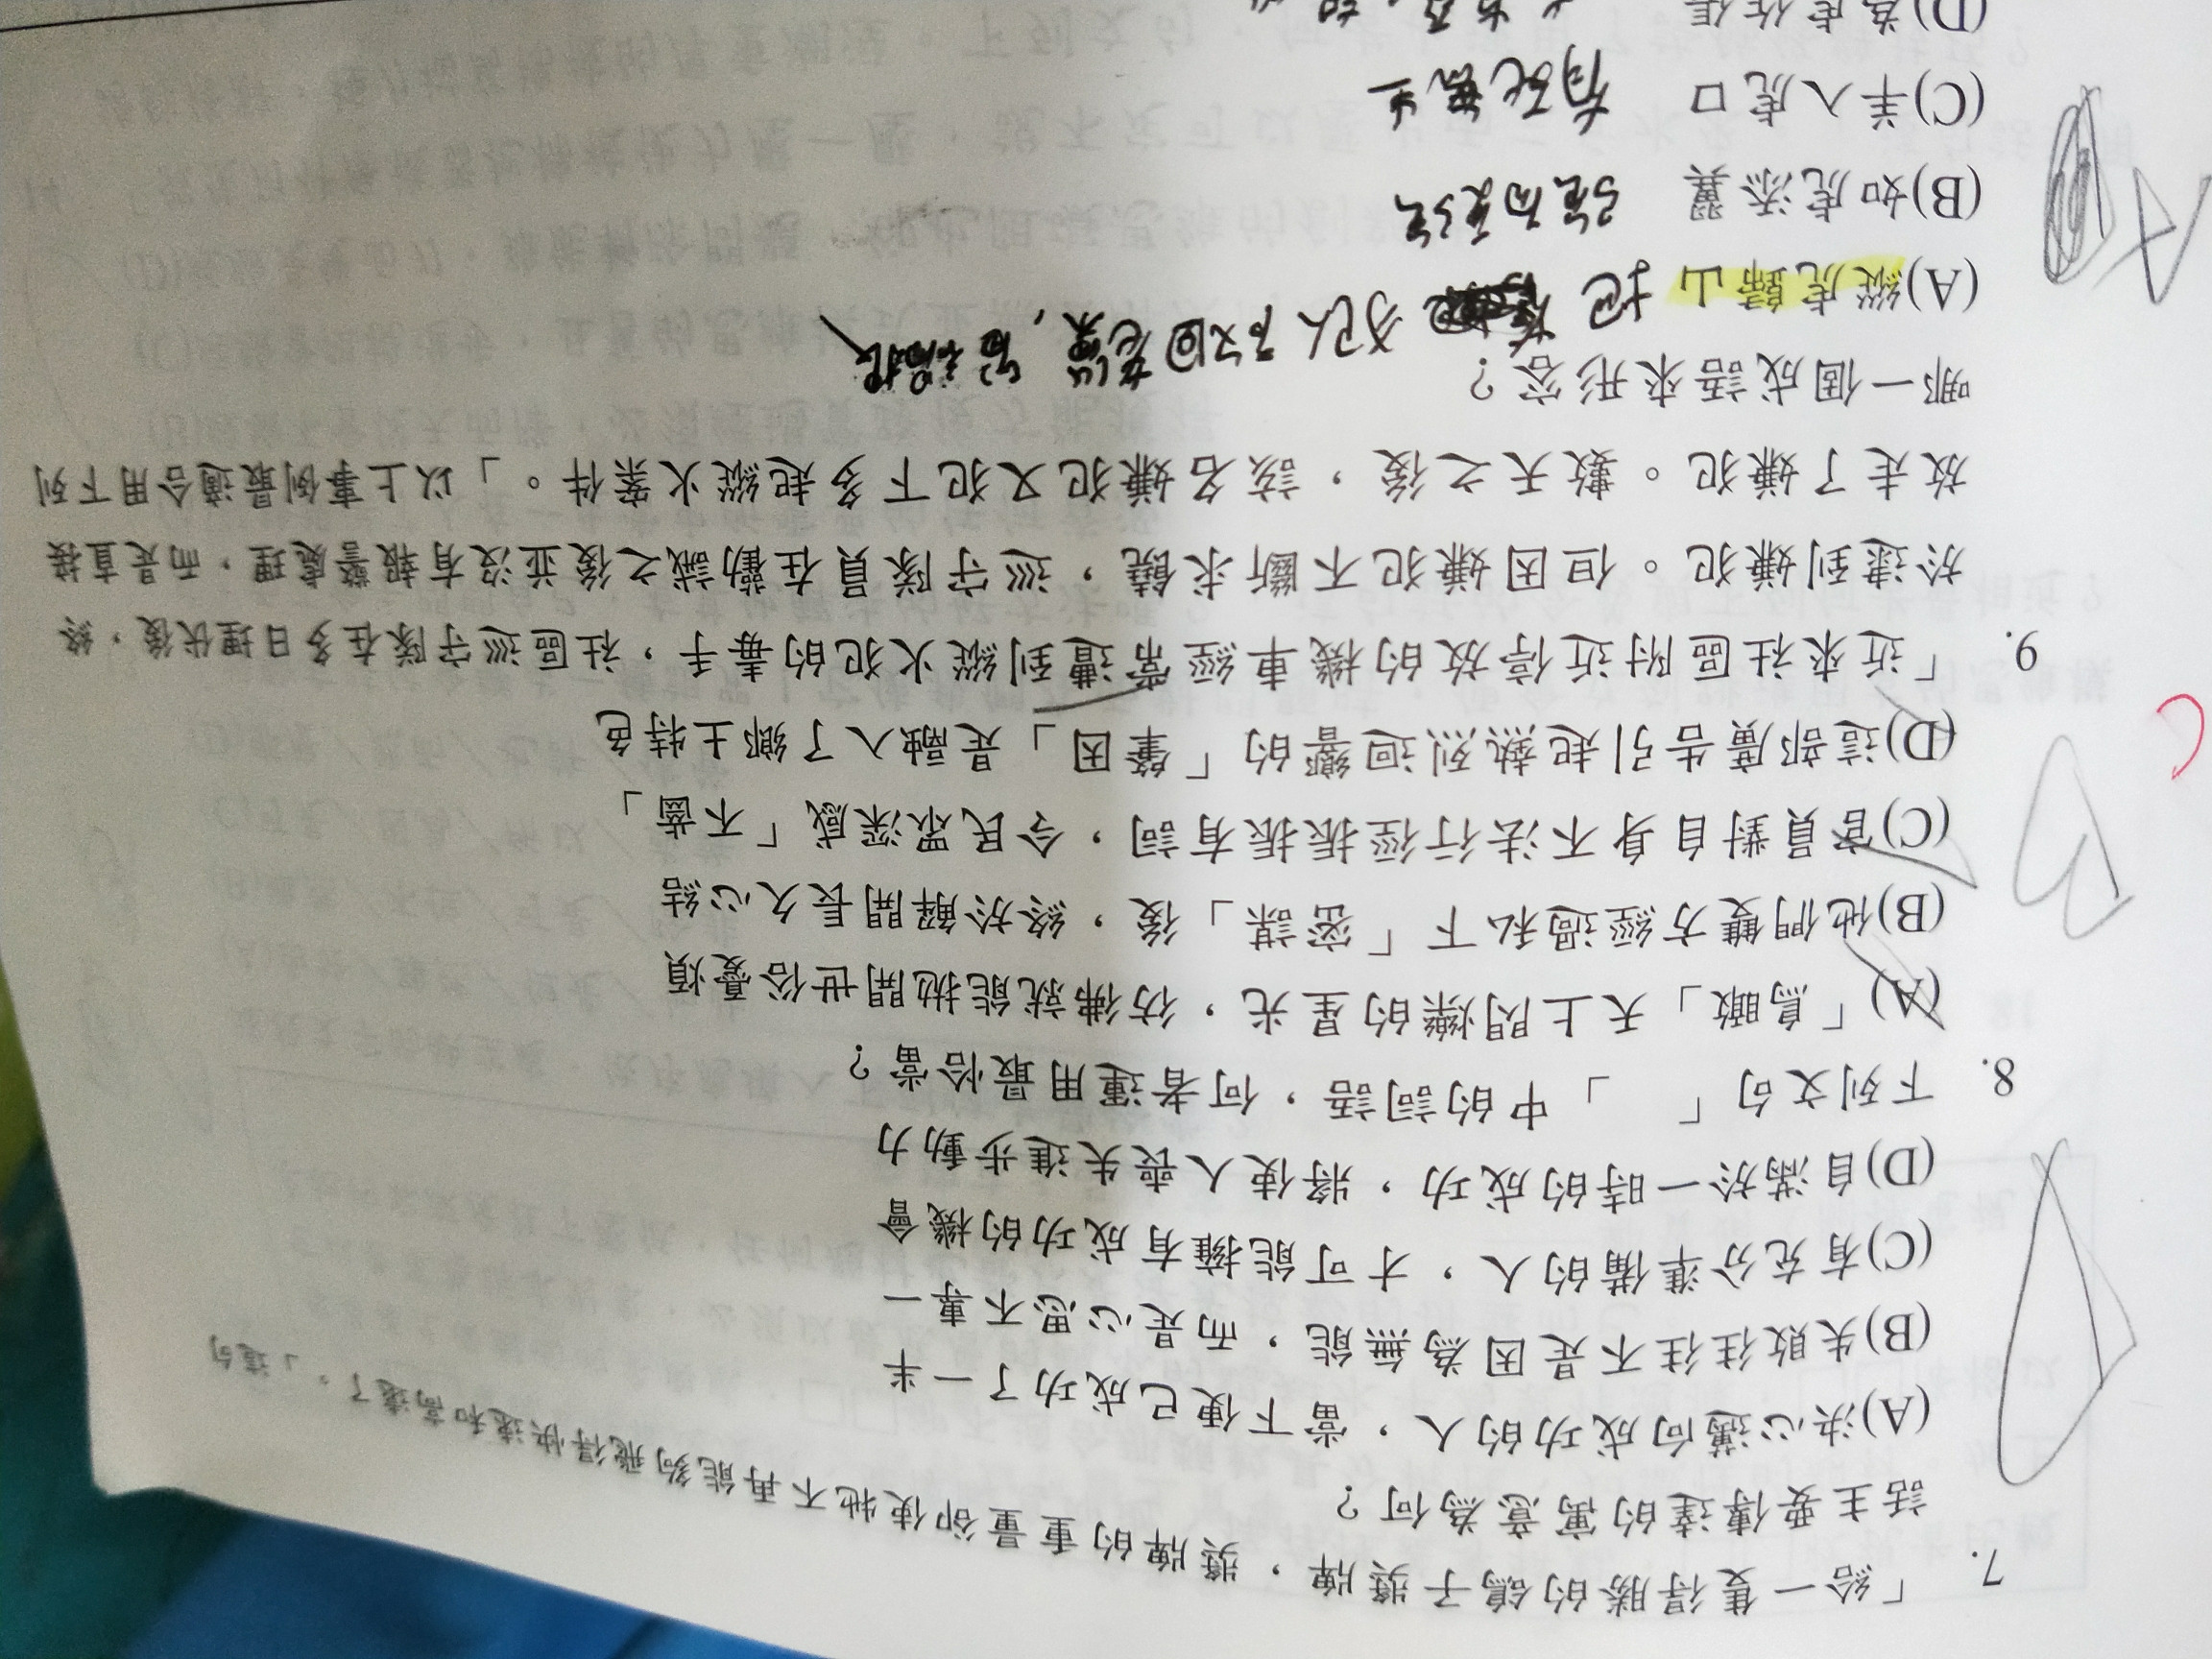 7. 「給一隻得勝的鴿子獎牌，獎牌的重量卻使牠不再能夠飛得快速和高遠了。」這句
話主要傳達的寓意為何？
(A)決心邁向成功的人，當下便已成功了一半
(B)失敗往往不是因為無能，而是心思不專一
(C)有充分準備的人，才可能擁有成功的機會
(D)自滿於一時的成功，將使人喪失進步動力
D
8. 下列文句「　」中的詞語，何者運用最恰當？
(A)「鳥瞰」天上閃爍的星光，彷彿就能拋開世俗憂煩
(B)他們雙方經過私下「密謀」後，終於解開長久心結
(C)官員對自身不法行徑振振有詞，令民眾深感「不齒」
(D)這部廣告引起熱烈迴響的「肇因」是融入了鄉土特色
D
C
9. 「近來社區附近停放的機車經常遭到縱火犯的毒手，社區巡守隊在多日埋伏後，終
於逮到嫌犯。但因嫌犯不斷求饒，巡守隊員在勸誡之後並沒有報警處理，而是直接
放走了嫌犯。數天之後，該名嫌犯又犯下多起縱火案件。」以上事例最適合用下列
哪一個成語來形容？
(A)縱虎歸山 把 犯人 放回老巢，
(B)如虎添翼 強而更強
(C)羊入虎口 有死無生
(D)為虎作倀
A